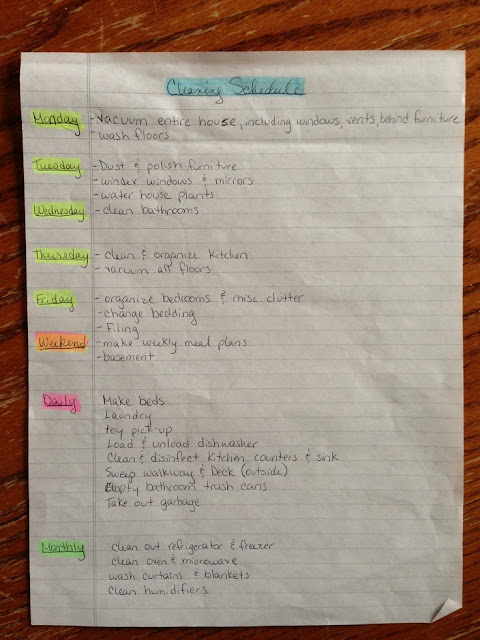 Cleaning Schedule
Monday - Vacuum entire house, including windows, vents, behind furniture
- wash floors
Tuesday - Dust & polish furniture
- windex windows & mirrors
- water house plants
Wednesday - clean bathrooms
Thursday - clean & organize kitchen
- vacuum all floors
Friday - organize bedrooms & misc. clutter
- change bedding
- Filing
Weekend - make weekly meal plans
- basement
Daily Make beds
Laundry
toy pick-up
Load & unload dishwasher
Clean & disinfect kitchen counters & sink
Sweep walkway & Deck (outside)
Empty bathroom trash cans
Take out garbage
Monthly clean out refrigerator & freezer
clean oven & microwave
wash curtains & blankets
Clean humidifiers